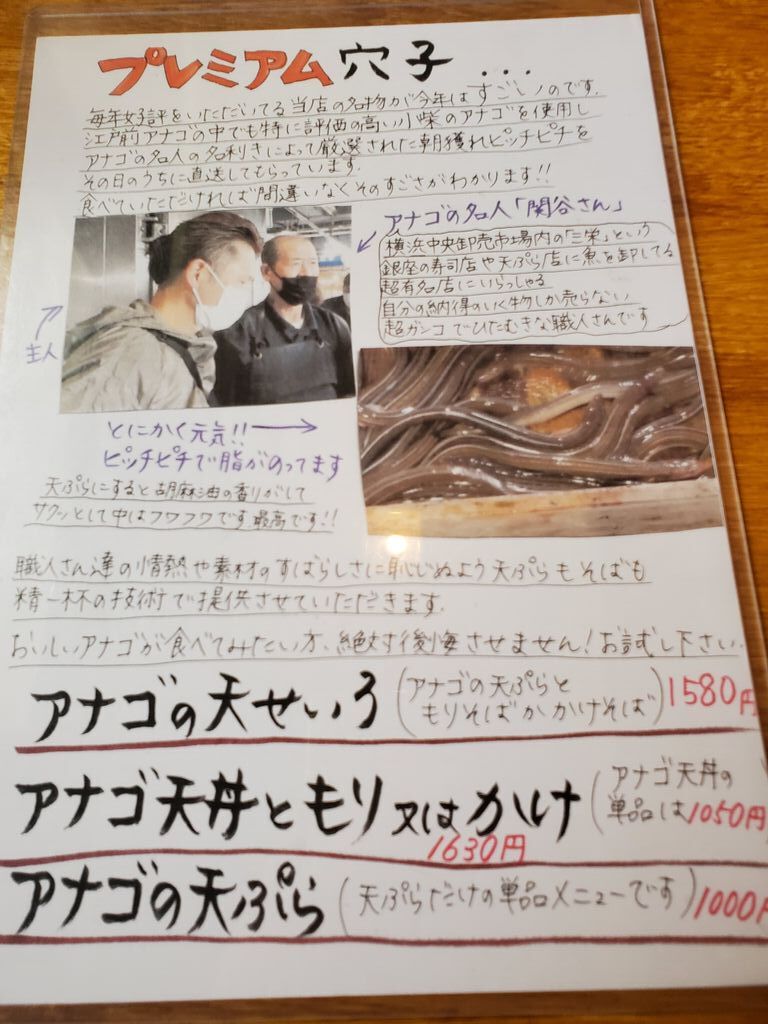 プレミアム穴子...
毎年好評をいただいてる当店の名物が今年はすごいのです。
江戸前アナゴの中でも特に評価の高い小柴のアナゴを使用し
アナゴの名人の名利きによって厳選された朝獲れピッチピチを
その日のうちに直送してもらっています。
食べていただければ間違いなくそのすごさがわかります!!
アナゴの名人「関谷さん」
横浜中央卸売市場内の「三栄」という
銀座の寿司店や天ぷら店に魚を卸してる
超有名店にいらっしゃる
自分の納得のいく物しか売らない
超ガンコでひたむきな職人さんです
主人
とにかく元気!!
ピッチピチで脂がのってます
天ぷらにすると胡麻油の香りがして
サクッとして中はフワフワです。最高です!!
職人さん達の情熱や素材のすばらしさに恥じぬよう天ぷらもそばも
精一杯の技術で提供させていただきます。
おいしいアナゴが食べてみたい方、絶対後悔させません!お試し下さい。
アナゴの天せいろ(アナゴの天ぷらと もりそばかかけそば)1580円
アナゴ天丼ともり又はかけ(アナゴ天丼の 単品は1050円
1630円
アナゴの天ぷら(天ぷらだけの単品メニューです)1000円